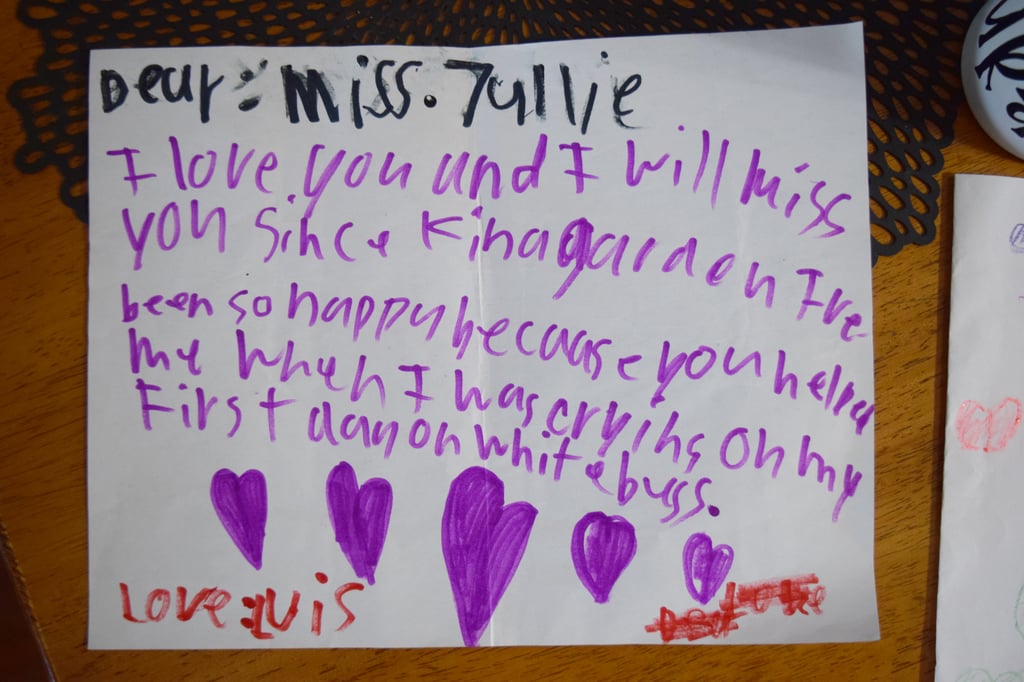 Dear: Miss. Jullie
I love you and I will miss
you since Kinagardon I've
been so happy because you helped
me when I was crying on my
First day on white buss.
Love: Luis